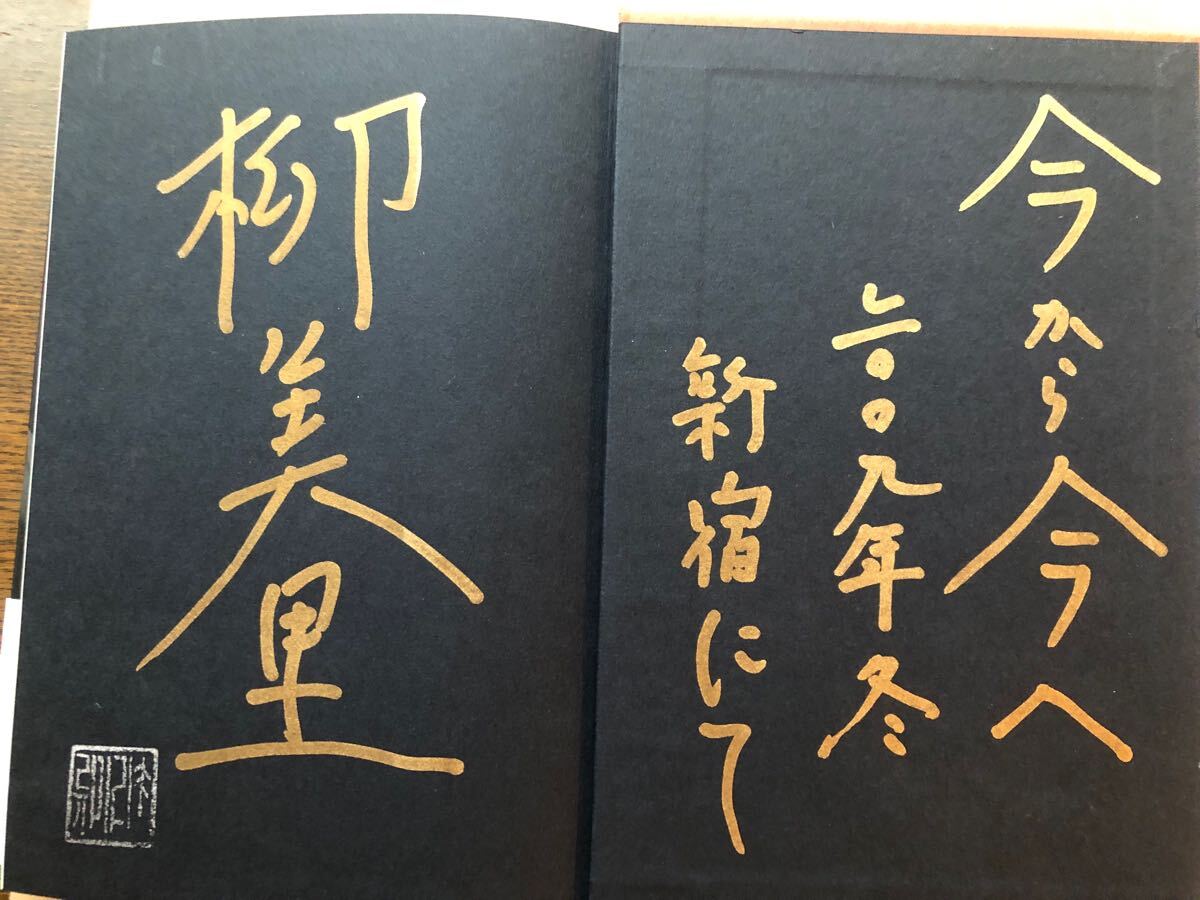 今から今へ
二〇〇九年冬
新宿にて
柳美里